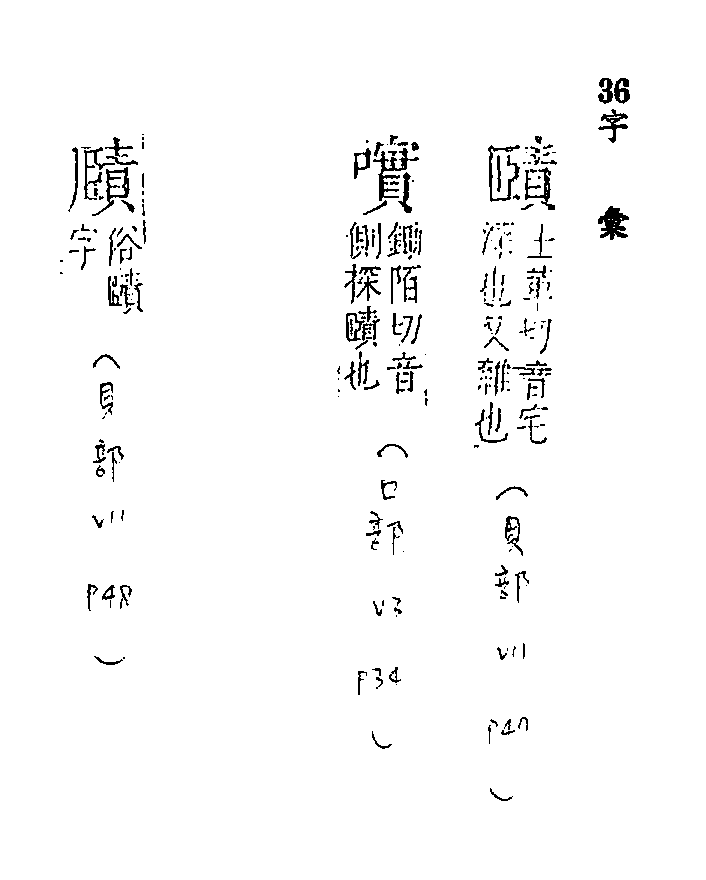 36字彙
賾
士革切音宅
深也又雜也
(貝部 V11 P47)
鋤陌切音
側探賾也
(口部 V3 P34)
俗賾
字
(貝部 V11 P48)